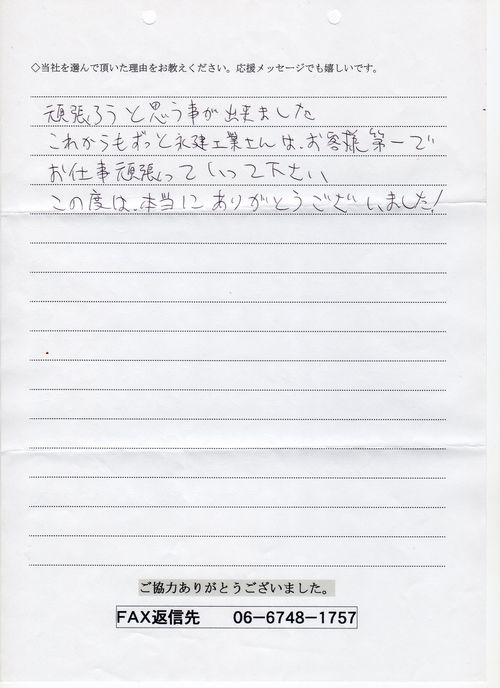 ◇当社を選んで頂いた理由をお教えください。応援メッセージでも嬉しいです。
頑張ろうと思う事が出来ました
これからもずっと永建工業さんは、お客様第一で
お仕事頑張っていって下さい
この度は、本当にありがとうございました!
ご協力ありがとうございました。
FAX返信先 06-6748-1757